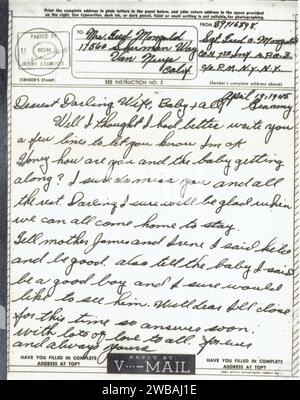 Print the complete address in plain letters in the panel below, and your return address in the space provided
on the right. Use typewriter, dark ink, or dark pencil. Faint or small writing is not suitable for photographing.
TO
FROM
PASSED BY
ARMY EXAMINER
Mrs.
17560 Sherman Way
Van Nuys
Calif.
Sgt.
Co. H. Inf. A.P.O.
% P.M. N.Y. N.Y.
(CENSOR'S STAMP)
SEE INSTRUCTION NO. 2
(Sender's complete address above)
April 1945
Germany
Dearest Darling Wife, Baby & all
Well I thought I had better write you
a few lines to let you know I'm ok
Honey how are you and the baby getting
along? I sure do miss you and all
the rest. Darling I sure will be glad when
we can all come home to stay.
Tell mother James and Irene I said hello
and be good. also tell the baby I said
be a good boy and I sure would
like to see him. Well dear I'll close
for this time so answer soon.
with lots of love to all. forever
and always yours
HAVE YOU FILLED IN COMPLETE
ADDRESS AT TOP?
REPLY BY
V···—MAIL
HAVE YOU FILLED IN COMPLETE
ADDRESS AT TOP?
alamy
Image ID: 2WBAJ1E
www.alamy.com